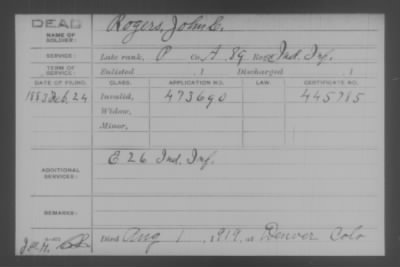 DEAD
NAME OF SOLDIER: Rogers, John E.
SERVICE: Late rank, P Co. A. 89 Reg't Ind. Inf.
TERM OF SERVICE: Enlisted , 1 Discharged , 1
DATE OF FILING. CLASS. APPLICATION NO. LAW. CERTIFICATE NO.
1883 Feb. 24 Invalid, 473690 445785
Widow,
Minor,
ADDITIONAL SERVICES: E. 26 Ind. Inf.
REMARKS:
Died Aug 1, 1919, at Denver Colo